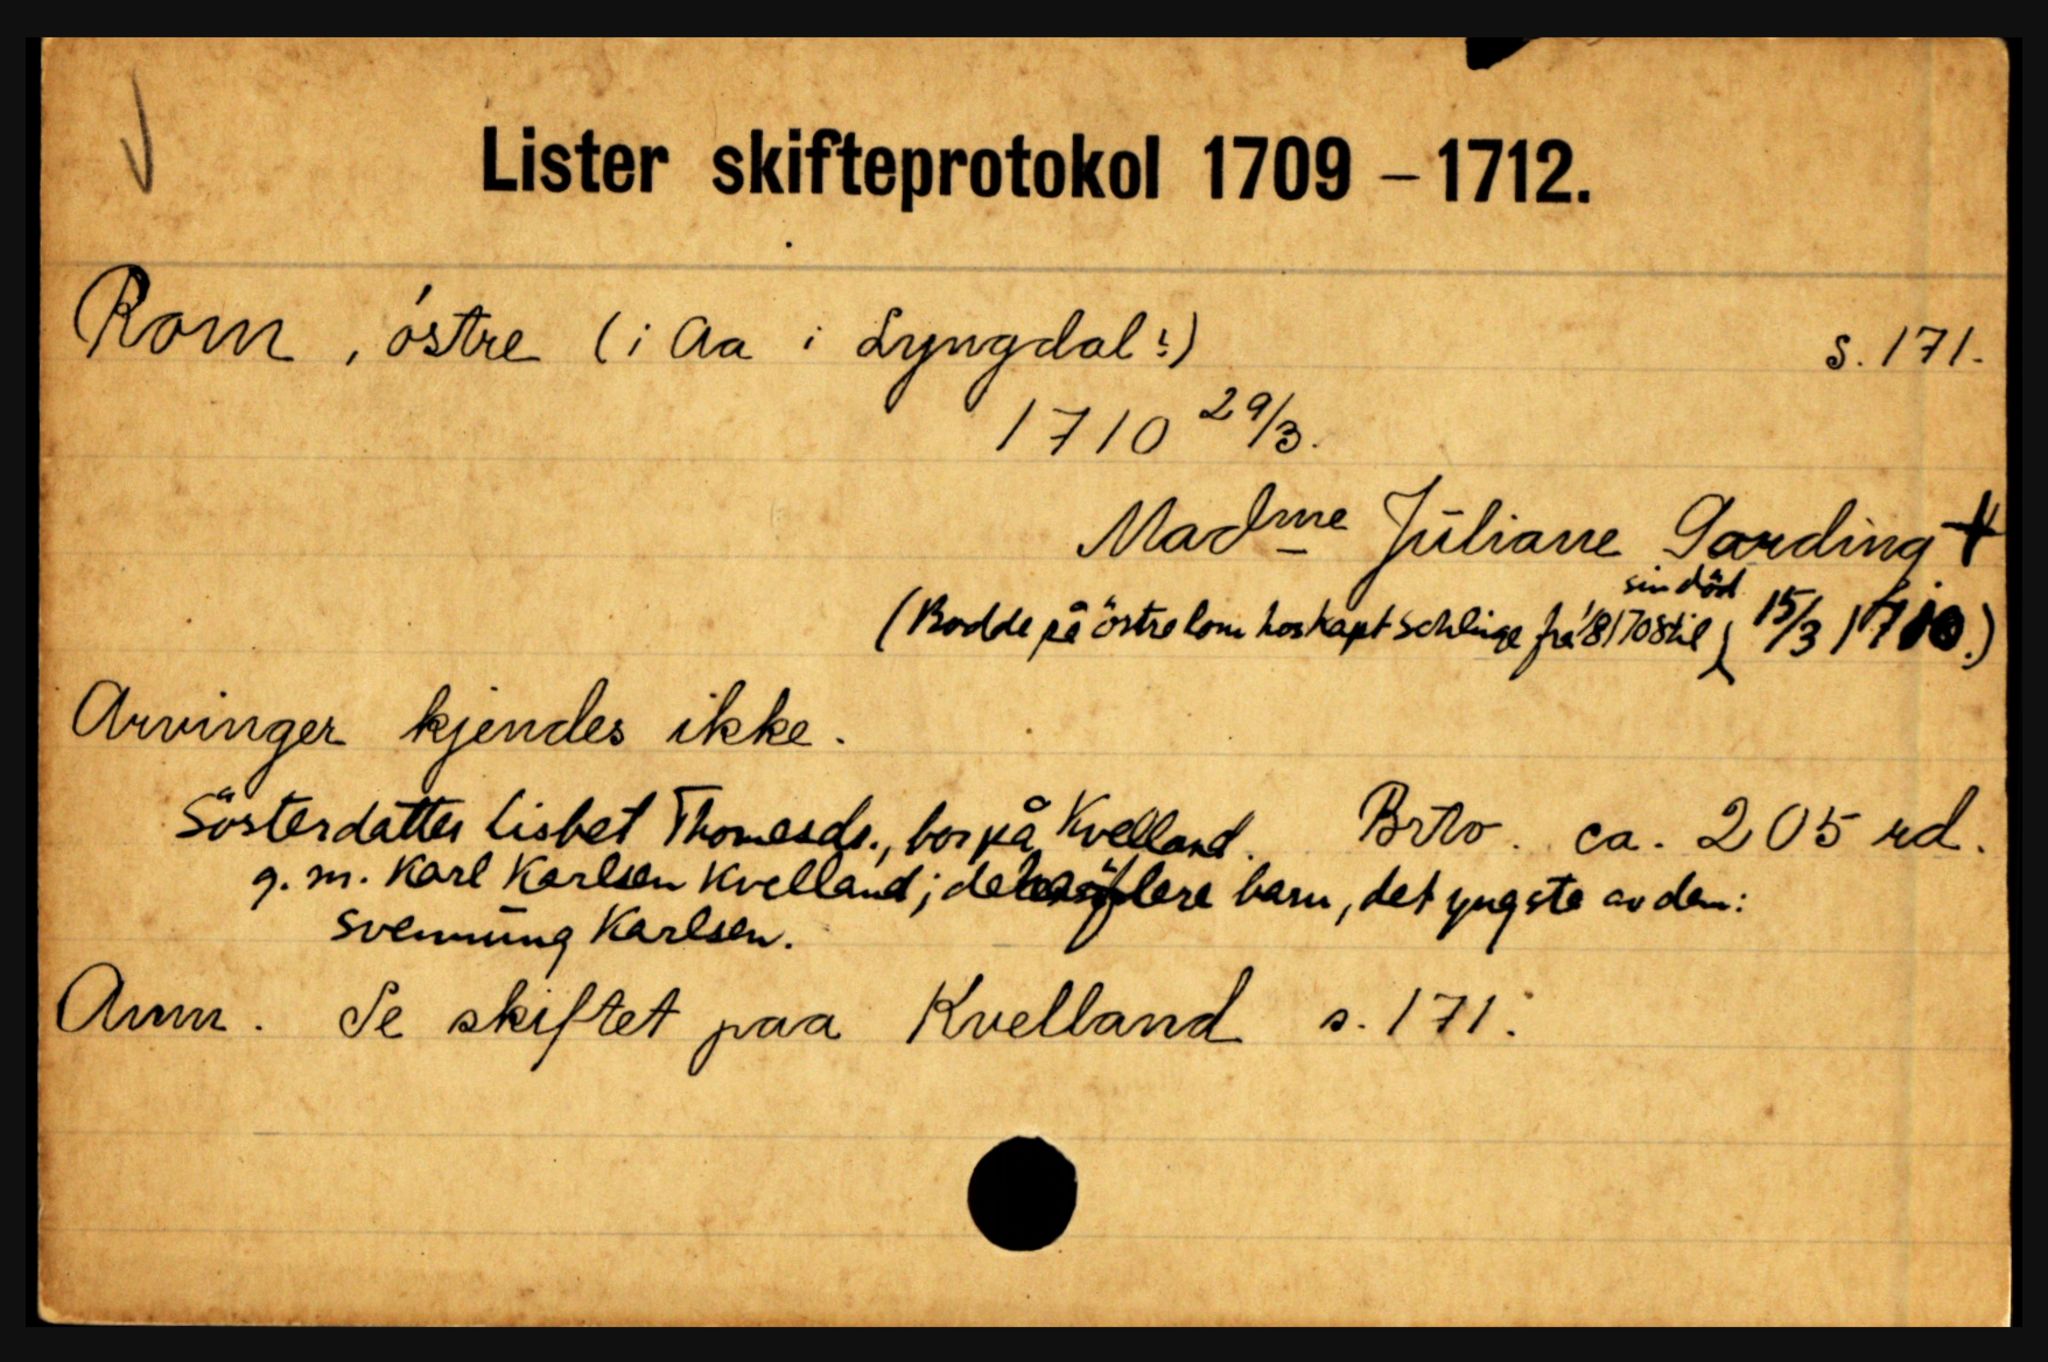 Lister skifteprotokol 1709 – 1712.
Rom, östre (i Aa i Lyngdal?) s. 171.
1710 29/3.
Madme Jūliane Garding †
sin död
(Bodde på östre Rom hos kapt Schlinge frå 1/8 1708 til 15/3 1710.)
Arvinger kjendes ikke.
Sösterdatter Lisbet Thomesdr., bor på Kvelland. Brto. ca. 205 rd.
g. m. Karl Karlsen Kvelland; de flere barn, det yngste av dem:
Svennūng Karlsen.
Anm. Se skiftet paa Kvelland s. 171.